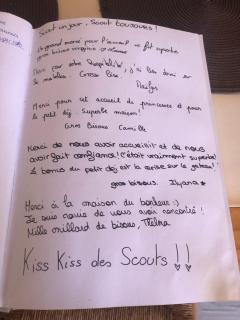 Scout un jour, Scout toujours !
Un grand merci pour l'accueil
Merci pour votre hospitalité
le matelas. Gros Bise,
Merci pour cet accueil de princesses et pour
le petit dèj. Superbe maison !
Gros Bisous Camille
Merci de nous avoir accueillit et de nous
avoir fait confiance! C'était vraiment superbe!
Le bonus du petit dej est la cerise sur le gateau!
gros bisous. Ilyana
Merci à la maison du bonheur :)
Je suis ravie de vous avoir rencontré !
Mille milliard de bisous, Thelma
Kiss Kiss des Scouts !!